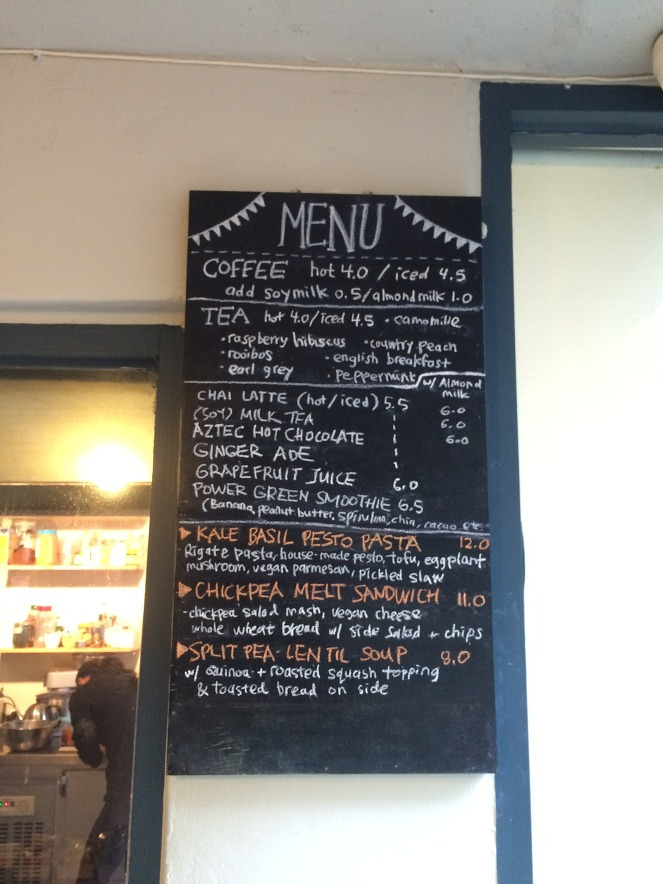 MENU
COFFEE hot 4.0 / iced 4.5
add soymilk 0.5/almondmilk 1.0
TEA hot 4.0/iced 4.5 • camomille
• raspberry hibiscus • country peach
• rooibos • english breakfast
• earl grey • peppermint
w/ Almond
milk
CHAI LATTE (hot/iced) 5.5 6.0
(SOY) MILK TEA 6.0
AZTEC HOT CHOCOLATE 6.0
GINGER ADE
GRAPEFRUIT JUICE 6.0
POWER GREEN SMOOTHIE 6.5
(Banana, peanut butter, spirulina, chia, cacao, etc
KALE BASIL PESTO PASTA 12.0
Rigate pasta, house-made pesto, tofu, eggplant
mushroom, vegan parmesan, pickled slaw
CHICKPEA MELT SANDWICH 11.0
-chickpea salad mash, vegan cheese
whole wheat bread w/ side salad + chips
SPLIT PEA-LENTIL SOUP 8.0
w/ Quinoa + roasted squash topping
& toasted bread on side